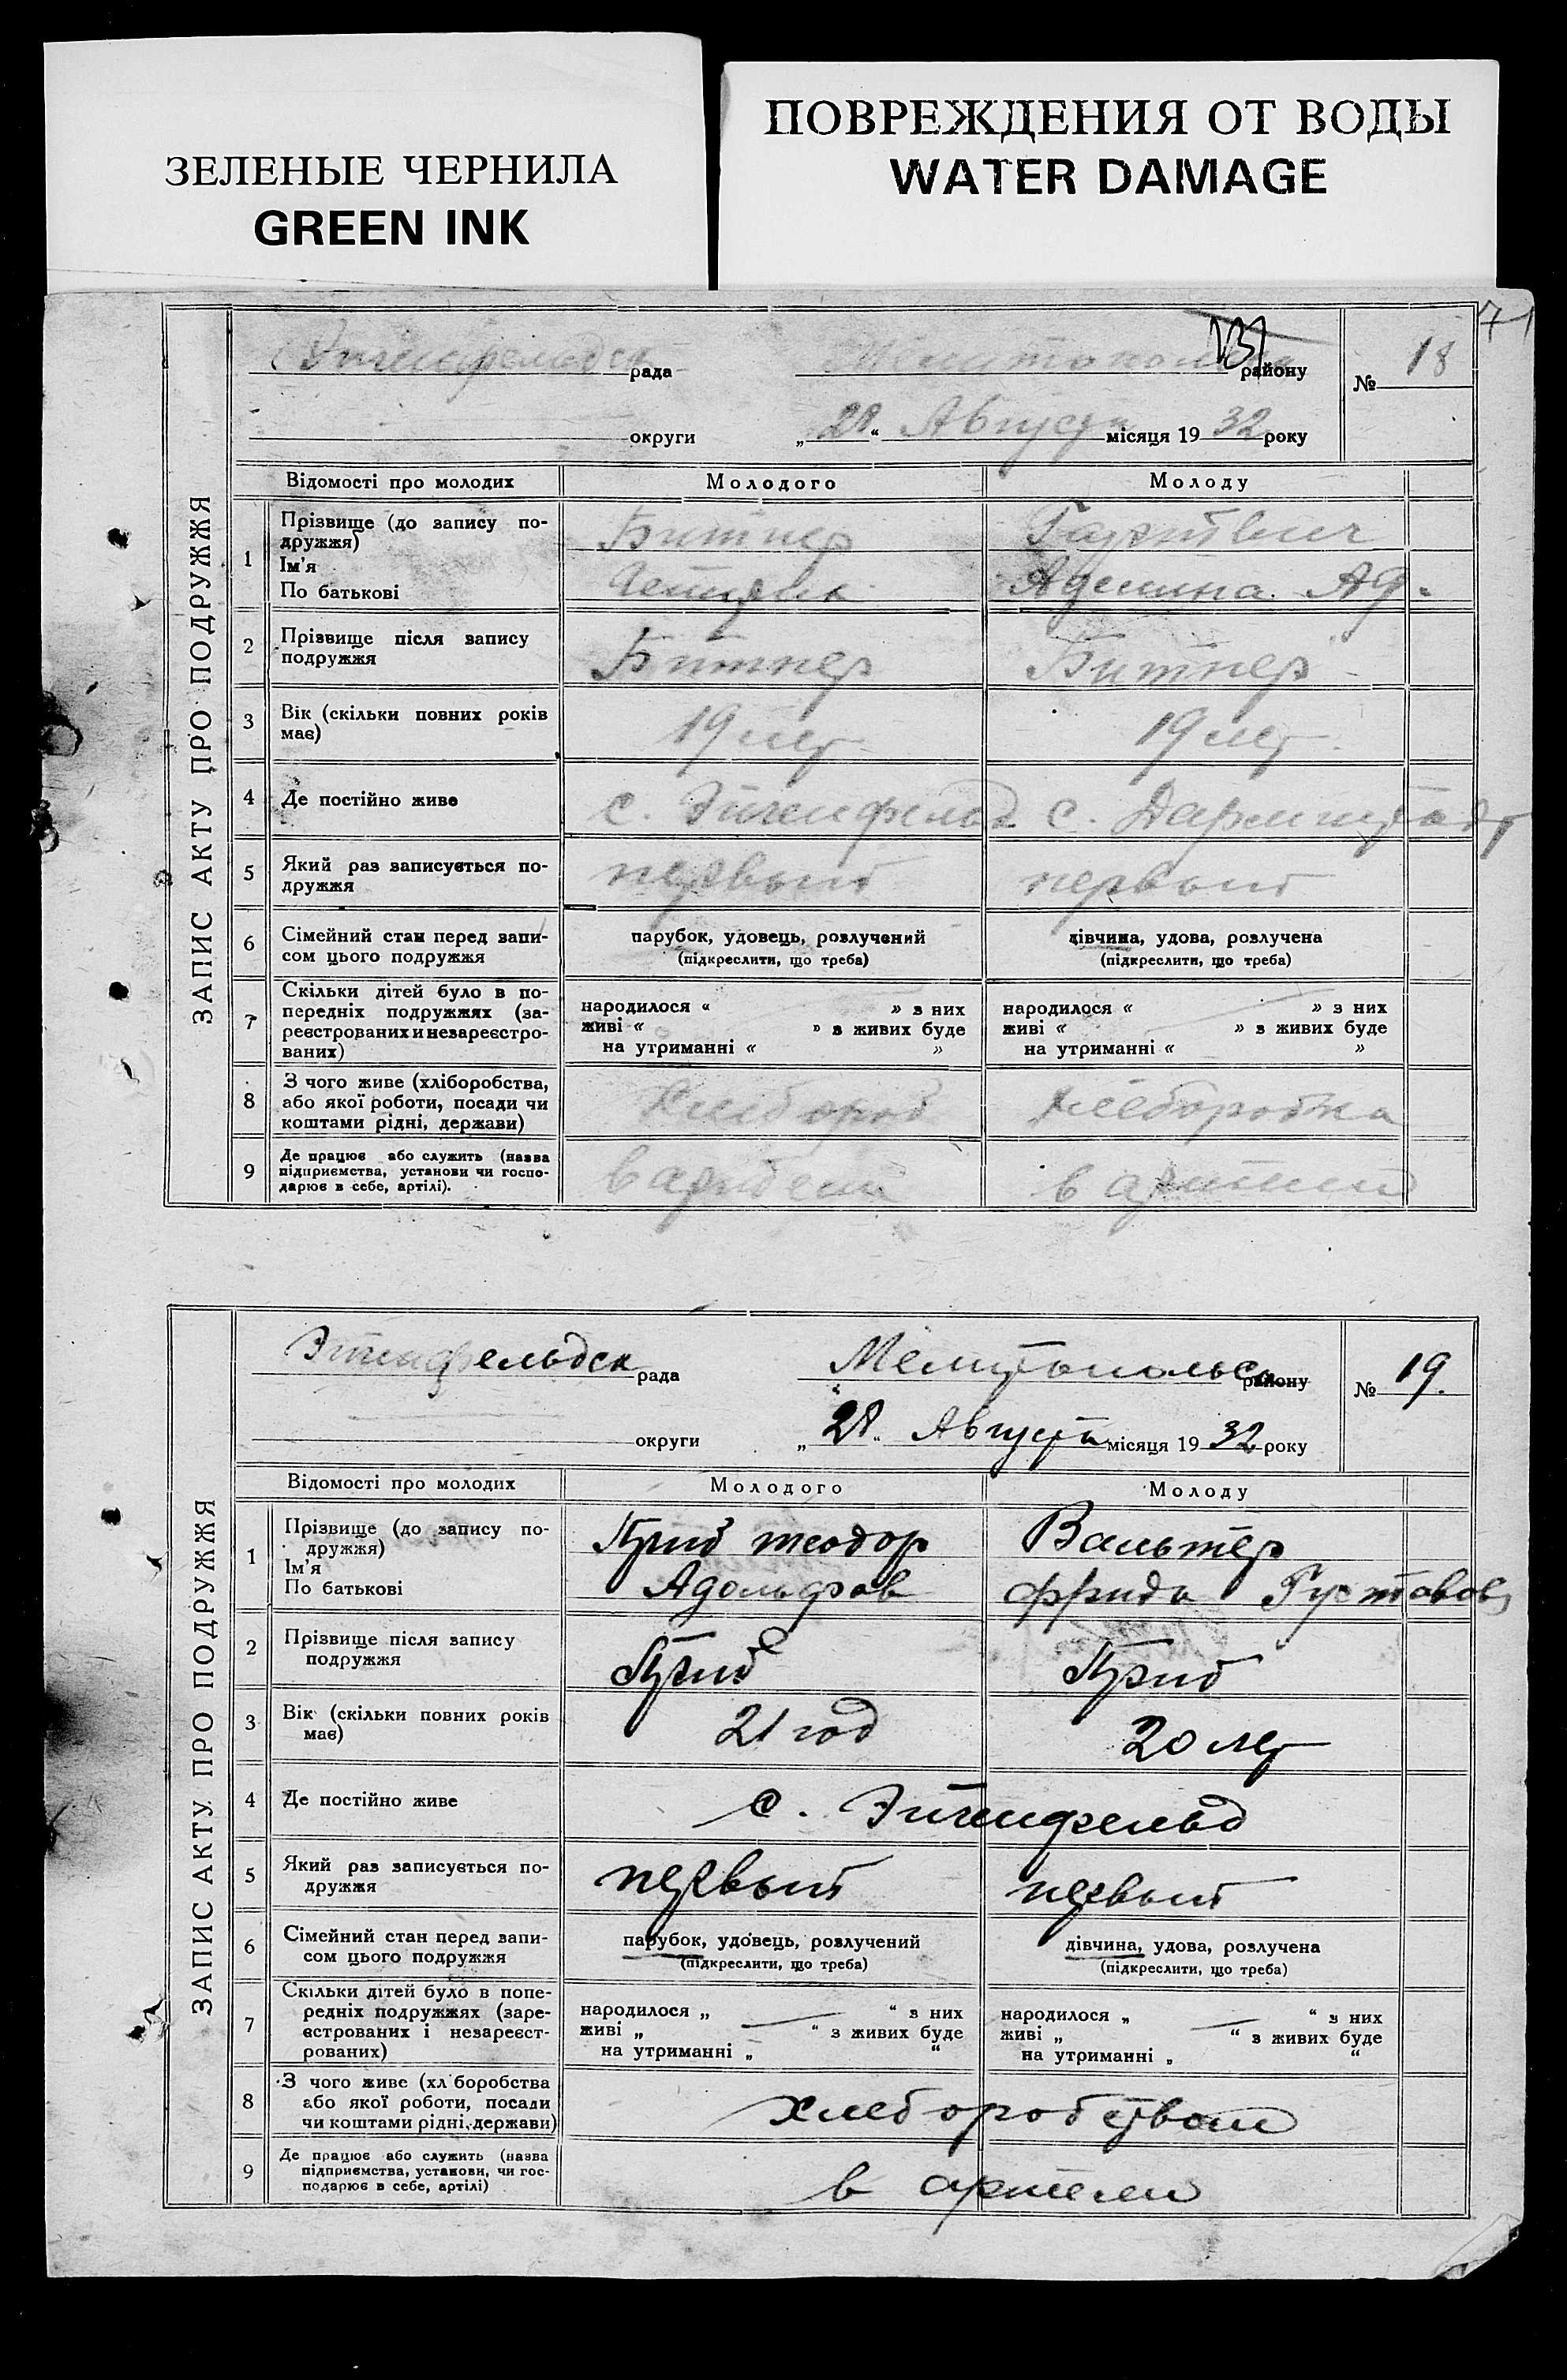 ЗЕЛЕНЫЕ ЧЕРНИЛА
GREEN INK
ПОВРЕЖДЕНИЯ ОТ ВОДЫ
WATER DAMAGE
71
131
ЗАПИС АКТУ ПРО ПОДРУЖЖЯ
Эйгенфельдск рада Мелитопольск району № 18
округи „28“ Августа місяця 1932 року
Відомості про молодих Молодого Молоду
1 Прізвище (до запису по-
дружжя)
Ім'я
По батькові
Битнер
Гейнрих
Аделина Ад.
2 Прізвище після запису
подружжя
Битнер Битнер
3 Вік (скільки повних років
має)
19 лет 19 лет
4 Де постійно живе с. Эйгенфельд с. Дармштадт
5 Який раз записується по-
дружжя
первый первый
6 Сімейний стан перед запи-
сом цього подружжя
парубок, удовець, розлучений
(підкреслити, що треба)
дівчина, удова, розлучена
(підкреслити, що треба)
7 Скільки дітей було в по-
передніх подружжях (за-
реєстрованих и незареєстро-
ваних)
народилося « » з них
живі « » з живих буде
на утриманні « »
народилося « » з них
живі « » з живих буде
на утриманні « »
8 З чого живе (хліборобства,
або якої роботи, посади чи
коштами рідні, держави)
Хлебороб хлеборобка
9 Де працює або служить (назва
підприємства, установи чи госпо-
дарює в себе, артілі).
в артели в артели
ЗАПИС АКТУ ПРО ПОДРУЖЖЯ
Эйгенфельдск рада Мелитопольск району № 19.
округи „28“ Августа місяця 1932 року
Відомості про молодих Молодого Молоду
1 Прізвище (до запису по-
дружжя)
Ім'я
По батькові
теодор
Адольфов
Вальтер
Фрида Густавов
2 Прізвище після запису
подружжя
3 Вік (скільки повних років
має)
21 год 20 лет
4 Де постійно живе с. Эйгенфельд
5 Який раз записується по-
дружжя
первый первый
6 Сімейний стан перед запи-
сом цього подружжя
парубок, удовець, розлучений
(підкреслити, що треба)
дівчина, удова, розлучена
(підкреслити, що треба)
7 Скільки дітей було в попе-
редніх подружжях (заре-
єстрованих і незареєст-
рованих)
народилося „ “ з них
живі „ “ з живих буде
на утриманні „ “
народилося „ “ з них
живі „ “ з живих буде
на утриманні „ “
8 З чого живе (хліборобства
або якої роботи, посади
чи коштами рідні, держави)
хлеборобством
9 Де працює або служить (назва
підприємства, установи, чи гос-
подарює в себе, артілі)
в артели